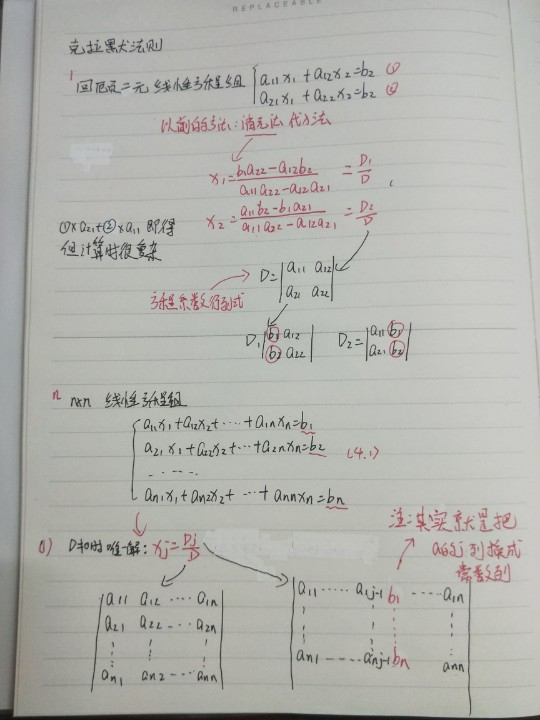 REPLACEABLE
克拉默法则
1 回顾二元线性方程组 { a11x1+a12x2=b2 ①
a21x1+a22x2=b2 ②
以前的方法:消元法 代入法
x1=(b1a22-a12b2)/(a11a22-a12a21) =D1/D
x2=(a11b2-b1a21)/(a11a22-a12a21) =D2/D
①×a21+②×a11 即得
但计算时很复杂
D=|a11 a12|
|a21 a22|
方程系数行列式
D1|b1 a12| D2=|a11 b1|
|b2 a22| |a21 b2|
n n×n 线性方程组
a11x1+a12x2+····+a1nxn=b1
a21x1+a22x2+···+a2nxn=b2 (4.1)
·····
an1x1+an2x2+···+annxn=bn
注:其实就是把
a的j列换成
常数列
D≠0时唯一解:xj=Dj/D
a11 a12 ···· a1n
a21 a22 ··· a2n
an1 an2 ··· ann
a11 ····· a1j-1 b1 ····· a1n
an1 ····· anj-1 bn ann